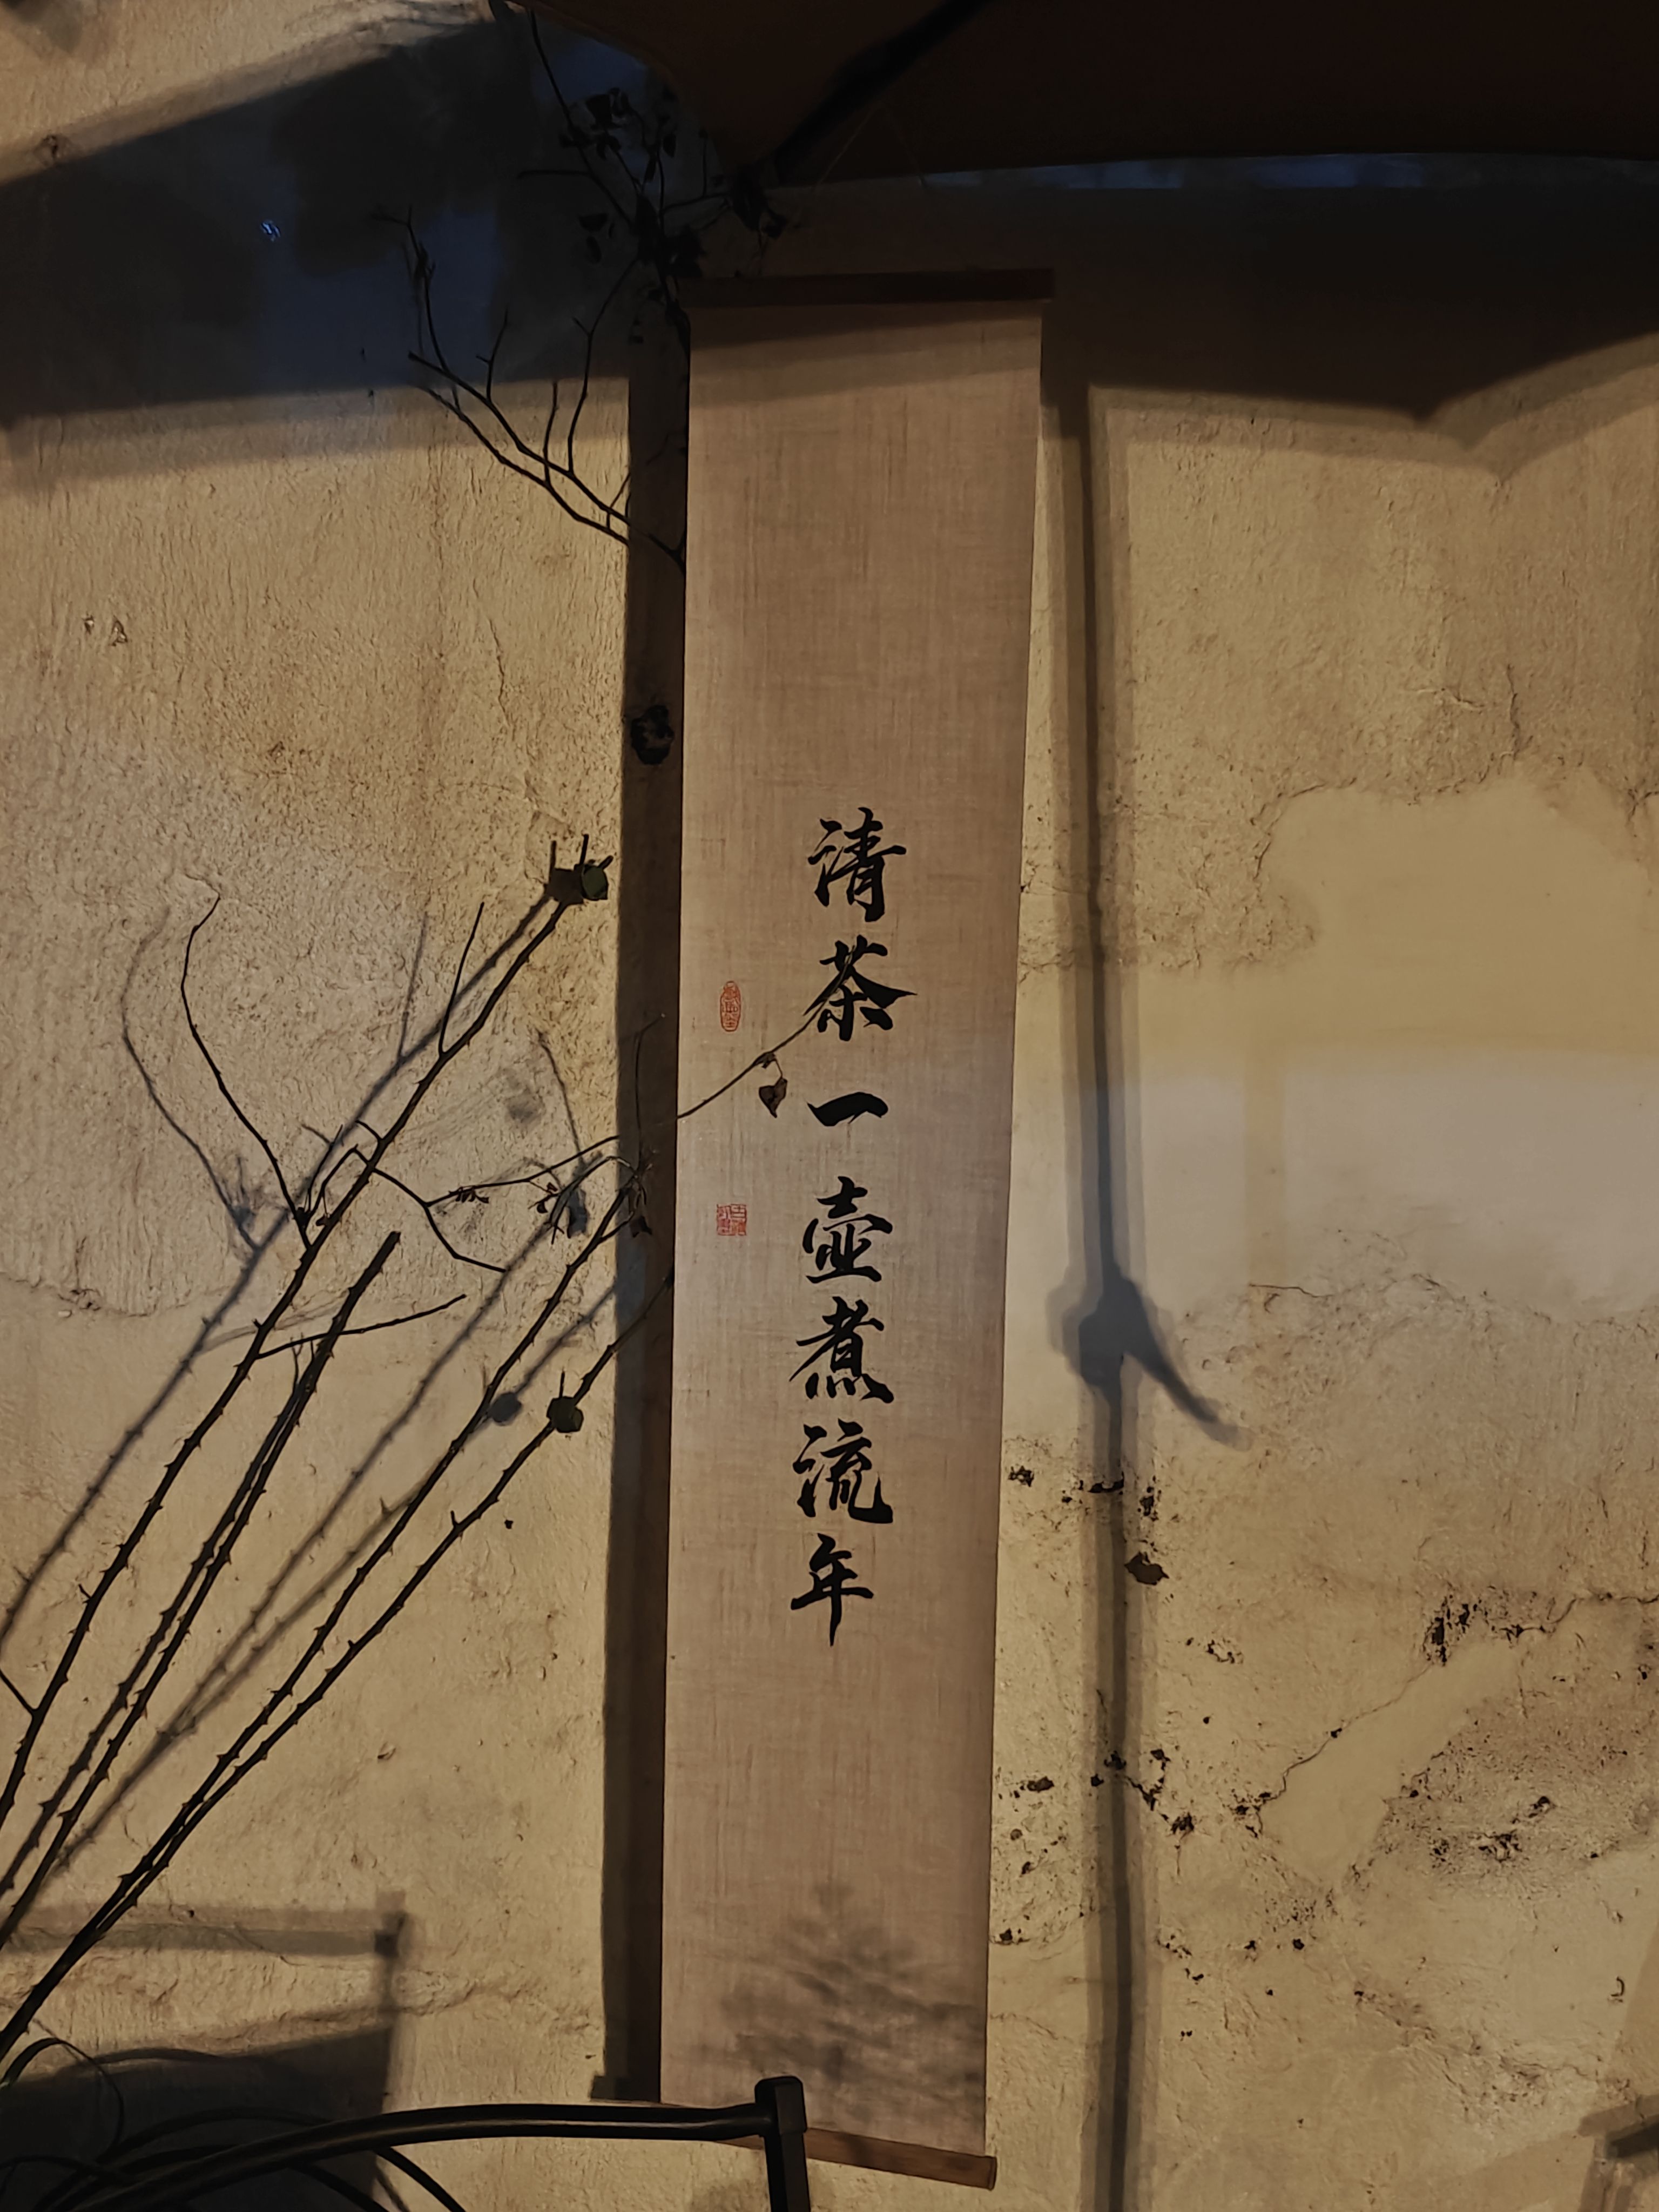 清茶一壶煮流年